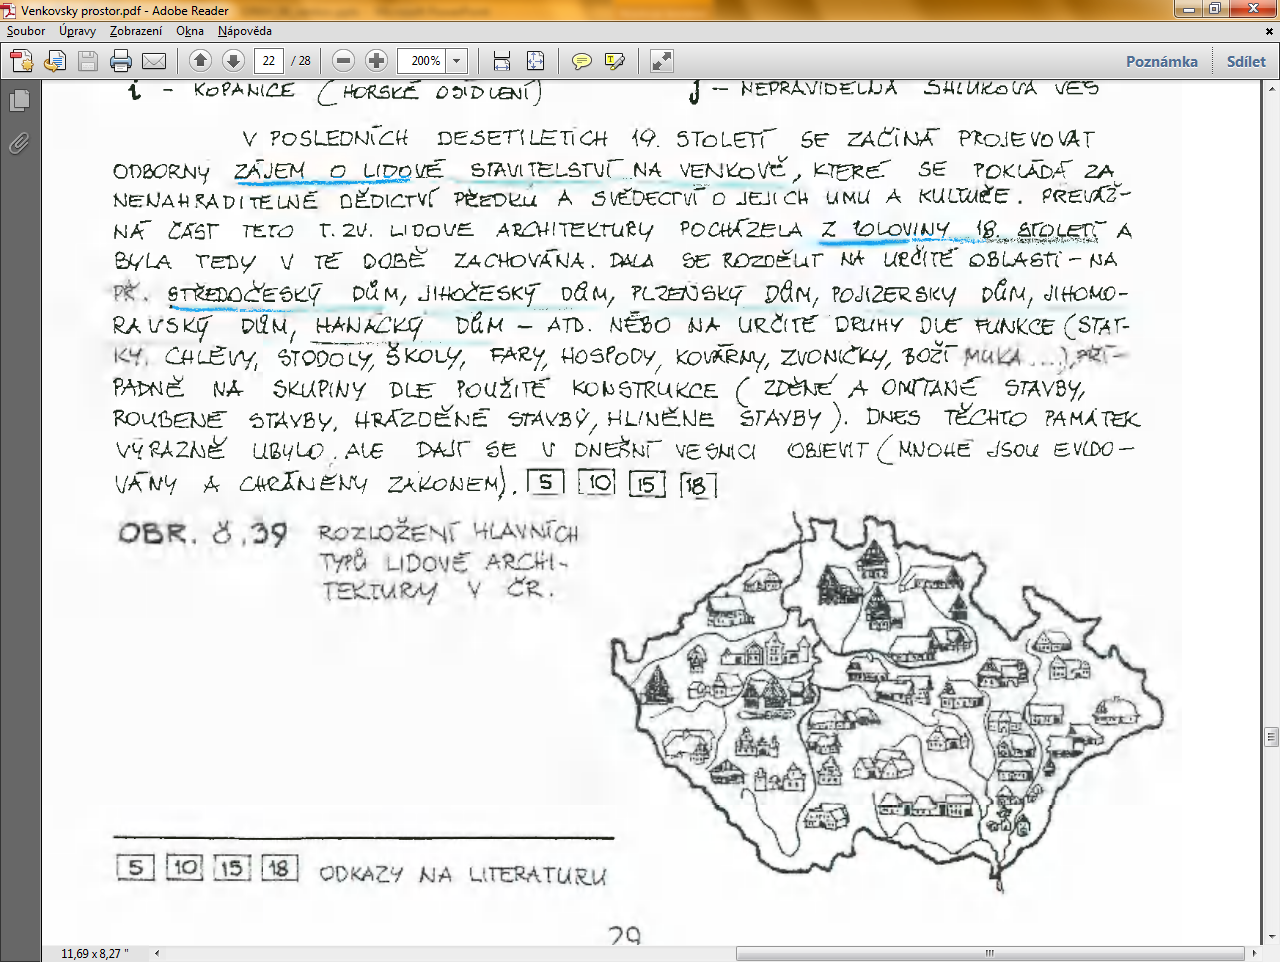 Venkovsky prostor.pdf - Adobe Reader
Soubor Úpravy Zobrazení Okna Nápověda
22 / 28 200% Poznámka Sdílet
i - KOPANICE (HORSKÉ OSÍDLENÍ) j - NEPRAVIDELNÁ SHLUKOVÁ VES
V POSLEDNÍCH DESETILETÍCH 19. STOLETÍ SE ZAČÍNÁ PROJEVOVAT
ODBORNY ZÁJEM O LIDOVÉ STAVITELSTVÍ NA VENKOVĚ, KTERÉ SE POKLÁDÁ ZA
NENAHRADITELNÉ DĚDICTVÍ PŘEDKŮ A SVĚDECTVÍ O JEJICH UMU A KULTUŘE. PŘEVÁŽ-
NÁ ČÁST TÉTO T.ZV. LIDOVÉ ARCHITEKTURY POCHÁZELA Z POLOVINY 18. STOLETÍ A
BYLA TEDY V TÉ DOBĚ ZACHOVÁNA. DALA SE ROZDĚLIT NA URČITÉ OBLASTI - NA
PŘ. STŘEDOČESKÝ DŮM, JIHOČESKÝ DŮM, PLZEŇSKÝ DŮM, POJIZERSKY DŮM, JIHOMO-
RAVSKÝ DŮM, HANÁCKÝ DŮM - ATD. NĚBO NA URČITÉ DRUHY DLE FUNKCE (STAT-
KY, CHLÉVY, STODOLY, ŠKOLY, FARY, HOSPODY, KOVÁRNY, ZVONIČKY, BOŽÍ MUKA ...), PŘÍ-
PADNĚ NA SKUPINY DLE POUŽITÉ KONSTRUKCE (ZDĚNÉ A OMÍTANÉ STAVBY,
ROUBENÉ STAVBY, HRÁZDĚNÉ STAVBY, HLINĚNÉ STAVBY). DNES TĚCHTO PAMÁTEK
VÝRAZNĚ UBYLO. ALE DAJÍ SE V DNEŠNÍ VESNICI OBJEVIT (MNOHÉ JSOU EVIDO-
VÁNY A CHRÁNĚNY ZÁKONEM). 5 10 15 18
OBR. Č. 39 ROZLOŽENÍ HLAVNÍCH
TYPŮ LIDOVÉ ARCHI-
TEKTURY V ČR.
5 10 15 18 ODKAZY NA LITERATURU
29
11,69 x 8,27 "